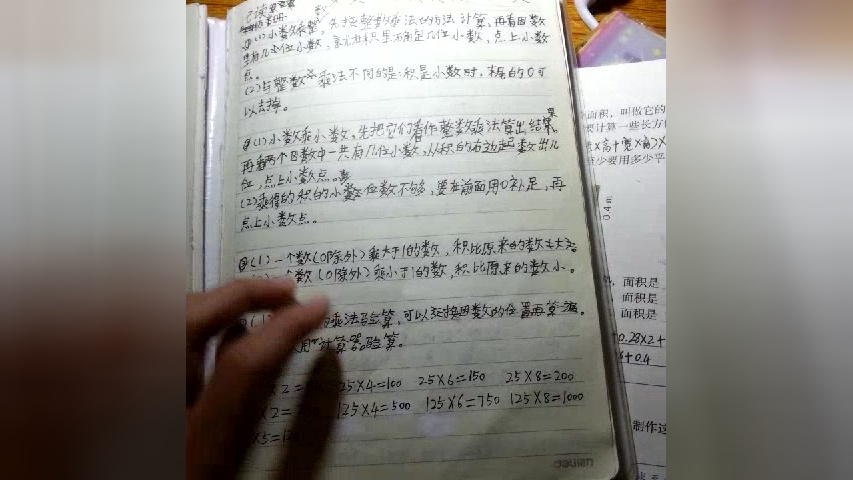 ①(1)小数乘整数,先按整数乘法的方法计算,再看因数
里有几位小数,就在积里面确定几位小数,点上小数
点。
(2)与整数乘法不同的是:积是小数时,末尾的0可
以去掉。
②(1)小数乘小数,先把它们看作整数乘法算出结果,
再看两个因数中一共有几位小数,从积的右边起数出几
位,点上小数点。
(2)乘得的积的小数位数不够,要在前面用0补足,再
点上小数点。
③(1)一个数(0除外)乘大于1的数,积比原来的数大
个数(0除外)乘小于1的数,积比原来的数小。
的乘法验算,可以交换因数的位置再算一遍。
用计算器验算。
×2= 25×4=100 25×6=150 25×8=200
×2= 125×4=500 125×6=750 125×8=1000
×5=
面积,叫做它的
要计算一些长方
×高+宽×高)×
至少要用多少平
0.4m
,面积是
,面积是
面积是
0.28×2+
+0.4
制作这